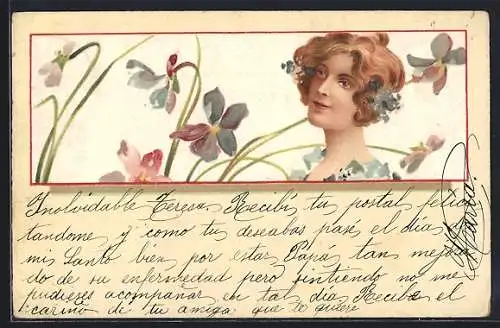 Inolvidable Teresa. Recibí tu postal felici
tandome y como tu deseabas pasé el día
mi Santo bien por estar Papá tan mejo
do de su enfermedad pero sintiendo no me
pudieses acompanar en tal día Recibe el
cariño de tu amiga que te quiere
Maria